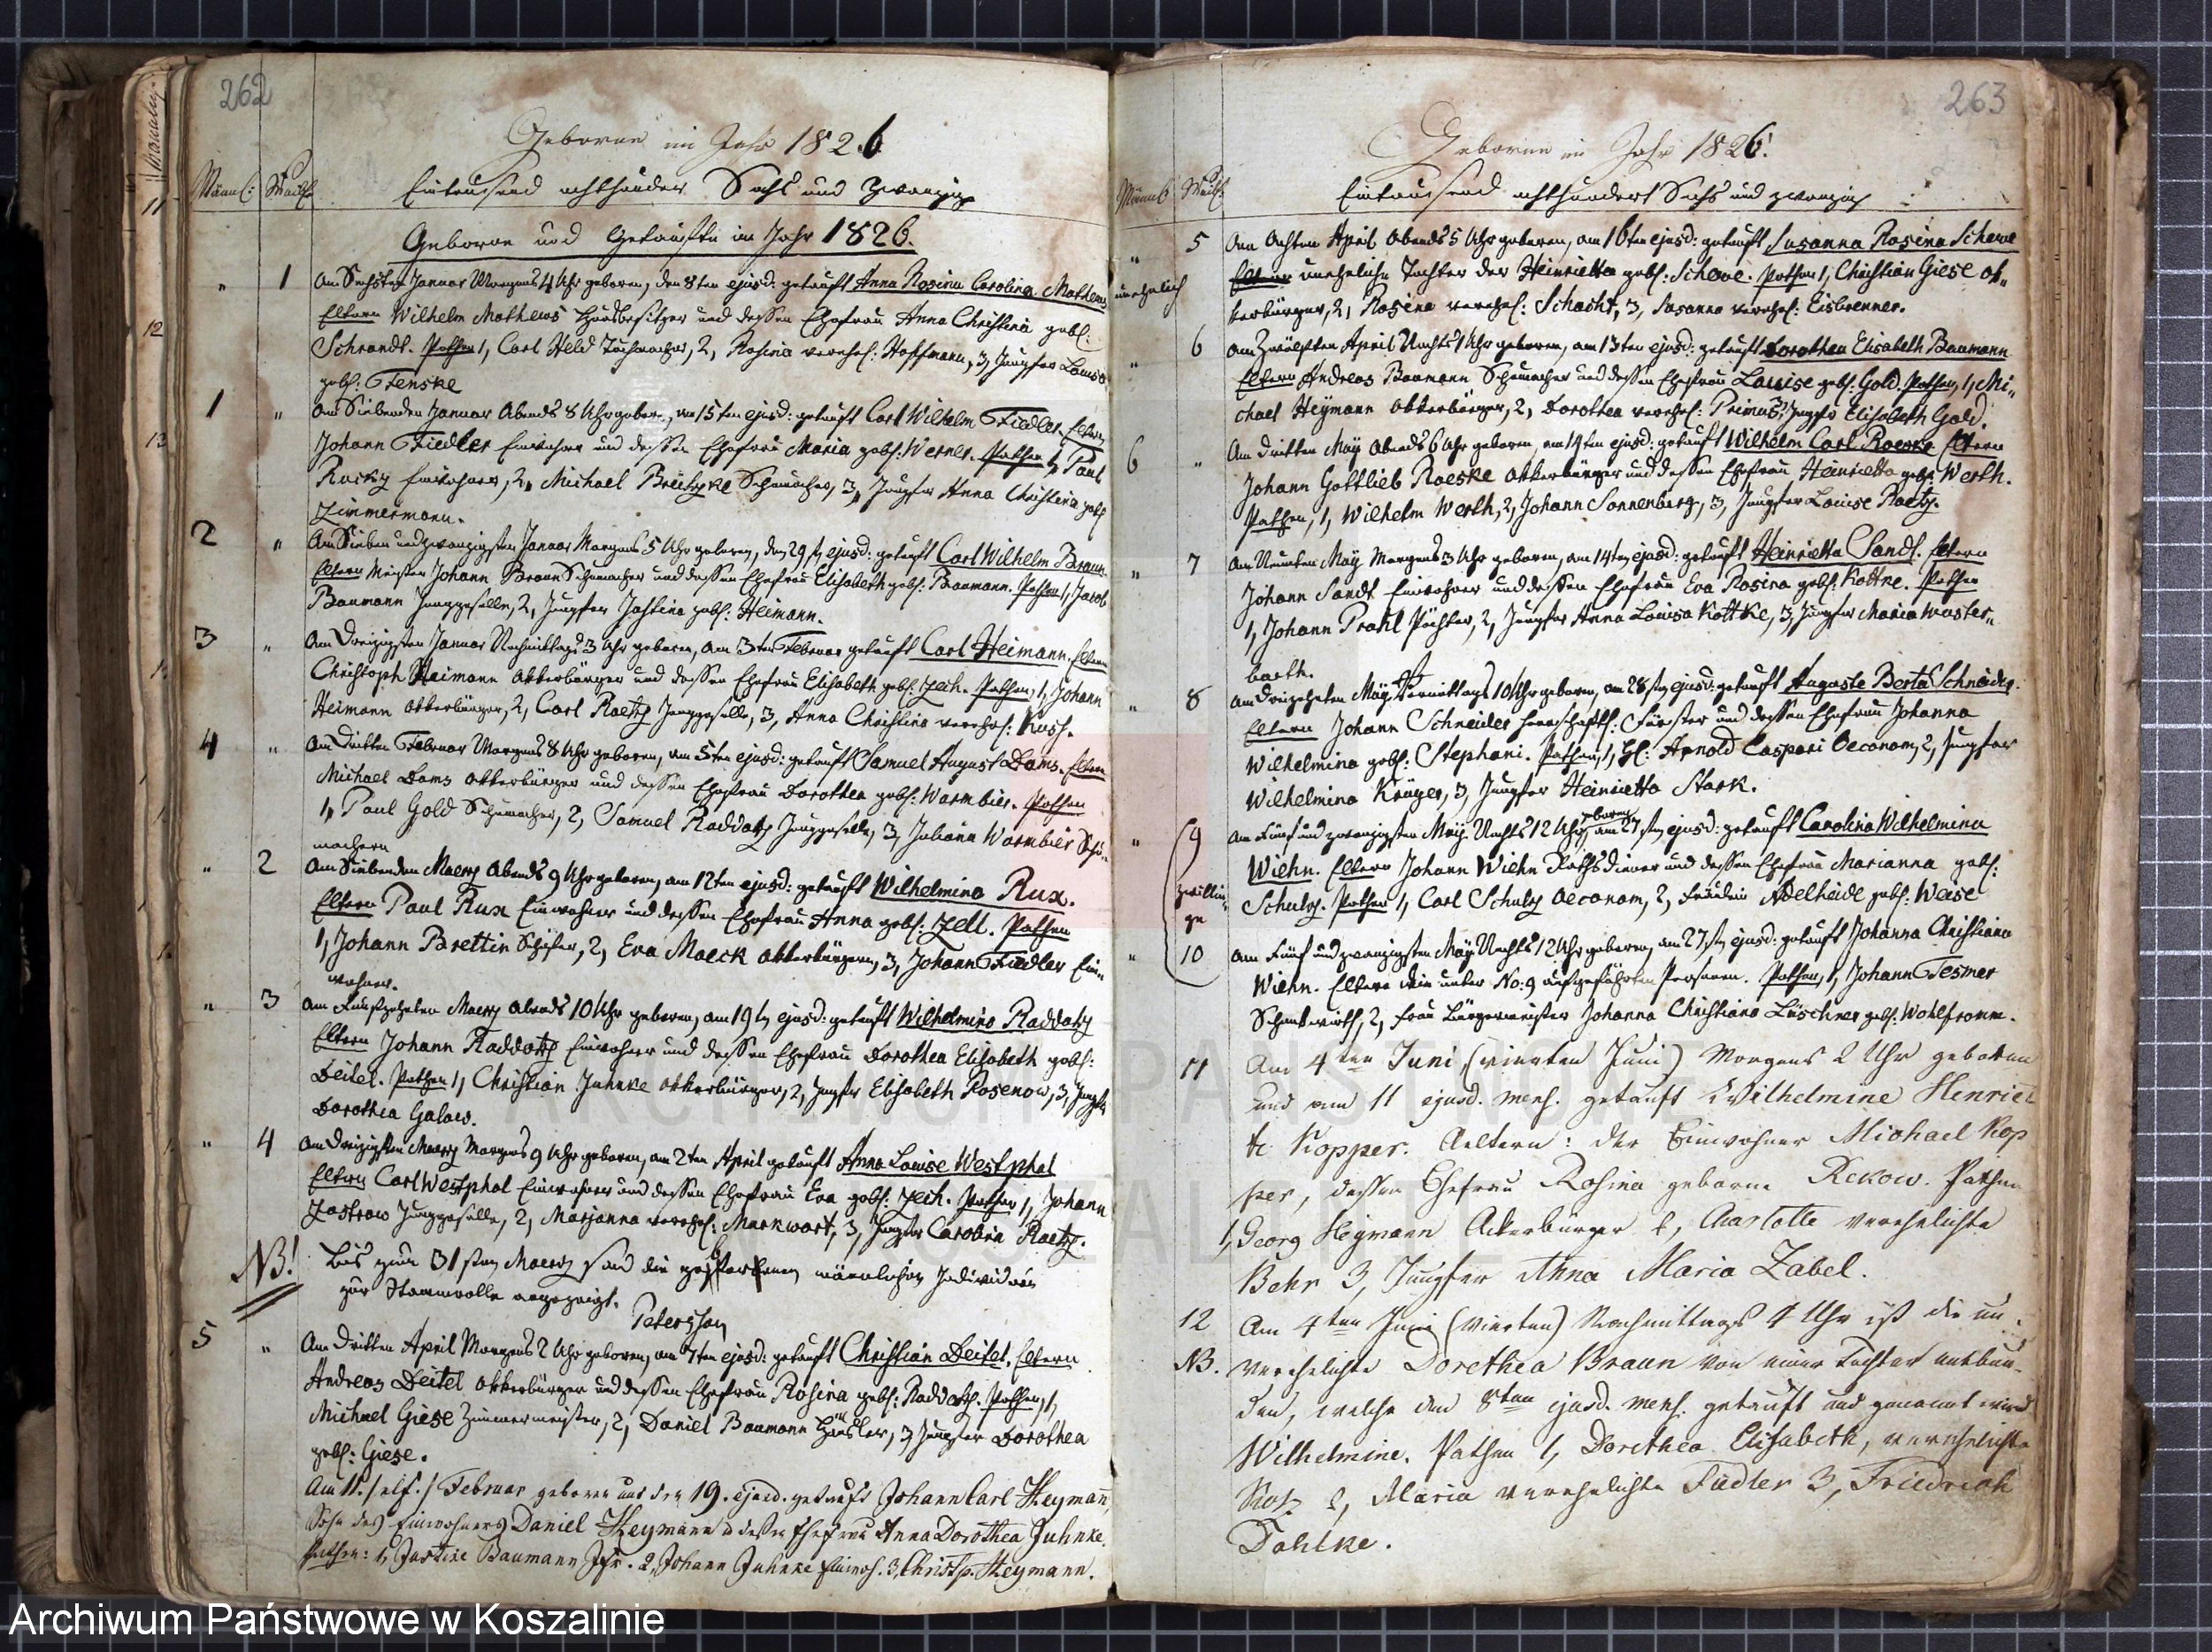 262
Geborne im Jahr 1826
Männl: Weibl:
Eintausend achthundert Sechs und Zwanzig
Geborne und Getaufte im Jahr 1826.
" 1 Am Sechsten Januar Morgens 4 Uhr geboren, den 8ten ejusd: getauft Anna Rosina Carolina Mathews
Eltern Wilhelm Mathews Hausbesitzer und dessen Ehefrau Anna Christina gebl:
Schrandt. Pathen 1, Carl Held Tuchmacher, 2, Rosina verehel: Hoffmann, 3, Jungfer Louise
gebl: Fenske
1 " Am Siebenden Januar Abends 8 Uhr geboren, am 15ten ejusd: getauft Carl Wilhelm Fiedler. Eltern
Johann Fiedler Einwohner und dessen Ehefrau Maria gebl: Werner. Pathen 1, Paul
Einwohner, 2, Michael Schumacher, 3, Jungfer Anna Christina gebl
Zimmermann.
2 " Am Sieben und zwanzigsten Januar Morgens 5 Uhr geboren, den 29ten ejusd: getauft Carl Wilhelm Braun.
Eltern Meister Johann Braun Schumacher und dessen Ehefrau Elisabeth gebl: Baumann. Pathen 1, Jacob
Baumann Junggeselle, 2, Jungfer Justina gebl: Heimann.
3 " Am Dreizigsten Januar Nachmittags 3 Uhr geboren, am 3ten Februar getauft Carl Heimann. Eltern
Christoph Heimann Akkerbürger und dessen Ehefrau Elisabeth gebl: Zech. Pathen, 1, Johann
Heimann Akkerbürger, 2, Carl Raetz Junggeselle, 3, Anna Christina verehel:
4 " Am Dritten Februar Morgens 8 Uhr geboren, am 5ten ejusd: getauft Samuel August Dams. Eltern
Michael Dams Akkerbürger und dessen Ehefrau Dorothea gebl: Warmbier. Pathen
1, Paul Gold Schumacher, 2, Samuel Raddatz Junggeselle, 3, Juliana Warmbier Schu-
machern
" 2 Am Siebenden Maerz Abends 9 Uhr geboren, am 12ten ejusd: getauft Wilhelmina Rux.
Eltern Paul Rux Einwohner und dessen Ehefrau Anna gebl: Zell. Pathen
1, Johann Brettin Schäfer, 2, Eva Maeck Akkerbürgern, 3, Johann Fiedler Ein-
wohner.
" 3 Am Funfzehnten Maerz Abends 10 Uhr geboren, am 19ten ejusd: getauft Wilhelmina Raddatz
Eltern Johann Raddatz Einwohner und dessen Ehefrau Dorothea Elisabeth gebl:
Deitel. Pathen 1, Christian Juhnke Akkerbürger, 2, Jungfer Elisabeth Rosenow, 3, Jungfer
Dorothea Galow.
" 4 Am Dreizigsten Maerz Morgens 9 Uhr geboren, am 2ten April getauft Anna Louise Westphal
Eltern Carl Westphal Einwohner und dessen Ehefrau Eva gebl: Zech. Pathen 1, Johann
Zastrow Junggeselle, 2, Marjanna verehel: Markwart, 3, Jungfer Carolina Raetz.
NB! Bis zum 31sten Maerz sind die gestorbenen männlichen Individuen
zur Stammrolle angezeigt.
Petersson
5 " Am Dritten April Morgens 2 Uhr geboren, am 7ten ejusd: getauft Christian Deitel. Eltern
Andreas Deitel Akkerbürger und dessen Ehefrau Rosina gebl: Raddatz. Pathen, 1,
Michael Giese Zimmermeister, 2, Daniel Baumann Häusler, 3, Jungfer Dorothea
gebl: Giese.
Am 11. /elf./ Februar geboren und den 19. ejusd. getauft Johann Carl Heymann,
Sohn des Einwohners Daniel Heymann u dessen Ehefrau Anna Dorothea Juhnke.
Pathen: 1, Justine Baumann Jfr. 2, Johann Juhnke Einwoh. 3, Christ. Heymann.
263
Geborne im Jahr 1826.
Männl Weibl:
Eintausend achthundert Sechs und zwanzig
" 5 Am Achten April Abends 5 Uhr geboren, am 16ten ejusd: getauft Susanna Rosina Schewe
unehelich Eltern uneheliche Tochter der Heinrietta gebl: Schewe. Pathen 1, Christian Giese Ak-
kerbürger, 2, Rosina verehel: Schacht, 3, Susanna verehel: Eisbrenner.
" 6 Am Zwölften April Nachts 1 Uhr geboren, am 13ten ejusd: getauft Dorothea Elisabeth Baumann
Eltern Andreas Baumann Schumacher und dessen Ehefrau Louise gebl: Gold. Pathen, 1, Mi-
chael Heymann Akkerbürger, 2, Dorothea verehel: Primus, Jungfer Elisabeth Gold.
6 " Am Dritten May Abends 6 Uhr geboren, am 14ten ejusd: getauft Wilhelm Carl Roeske Eltern
Johann Gottlieb Roeske Akkerbürger und dessen Ehefrau Heinrietta gebl: Werth.
Pathen, 1, Wilhelm Werth, 2, Johann Sonnenberg, 3, Jungfer Louise Raetz.
" 7 Am Neunten May Morgens 3 Uhr geboren, am 14ten ejusd: getauft Heinrietta Sandt. Eltern
Johann Sandt Einwohner und dessen Ehefrau Eva Rosina gebl: Kottke. Pathen
1, Johann Prahl Pächter, 2, Jungfer Anna Louisa Kottke, 3, Jungfer Maria Waster-
barth.
" 8 Am Dreizehnten May Vormittags 10 Uhr geboren, am 28sten ejusd: getauft Auguste Berta Schneider.
Eltern Johann Schneider herrschaftl: Förster und dessen Ehefrau Johanna
Wilhelmina gebl: Stephani. Pathen, 1, H: Arnold Caspari Oeconom, 2, Jungfer
Wilhelmina Krüger, 3, Jungfer Heinrietta Stark.
" 9 Am Fünf und zwanzigsten May Nachts 12 Uhr geboren, am 27sten ejusd: getauft Carolina Wilhelmina
Wiehn. Eltern Johann Wiehn Rathsdiener und dessen Ehefrau Marianna gebl:
Zwillin-
ge
Schulz. Pathen 1, Carl Schulz Oeconom, 2, Fräulein Adelheide gebl: Weise
" 10 Am Fünf und zwanzigsten May Nachts 12 Uhr geboren, am 27sten ejusd: getauft Johanna Christiana
Wiehn. Eltern die unter No: 9 aufgeführten Personen. Pathen, 1, Johann Tesmer
Schankwirth, 2, Frau Bürgermeister Johanna Christiana Löschner gebl: Wohlfromm.
11 Am 4ten Juni, (vierten Juni) Morgens 2 Uhr geboren
und am 11 ejusd. mens. getauft Wilhelmine Henriet
te Kopper. Aeltern: der Einwohner Michael Kop
per, dessen Ehefrau Rosina geborne Rekow. Pathen
1, Georg Heymann Ackerbürger 2, Charlotte verehelichte
Behr 3, Jungfer Anna Maria Zabel.
12 Am 4ten Juni (vierten) Nachmittags 4 Uhr ist die un-
NB. verehelichte Dorethea Braun von einer Tochter entbun-
den, welche den 8ten ejusd. mens. getauft und genannt wird
Wilhelmine. Pathen 1, Dorethea Elisabeth, verehelichte
2, Maria verehelichte Fiedler 3, Friedrich
Dahlke.
Archiwum Państwowe w Koszalinie